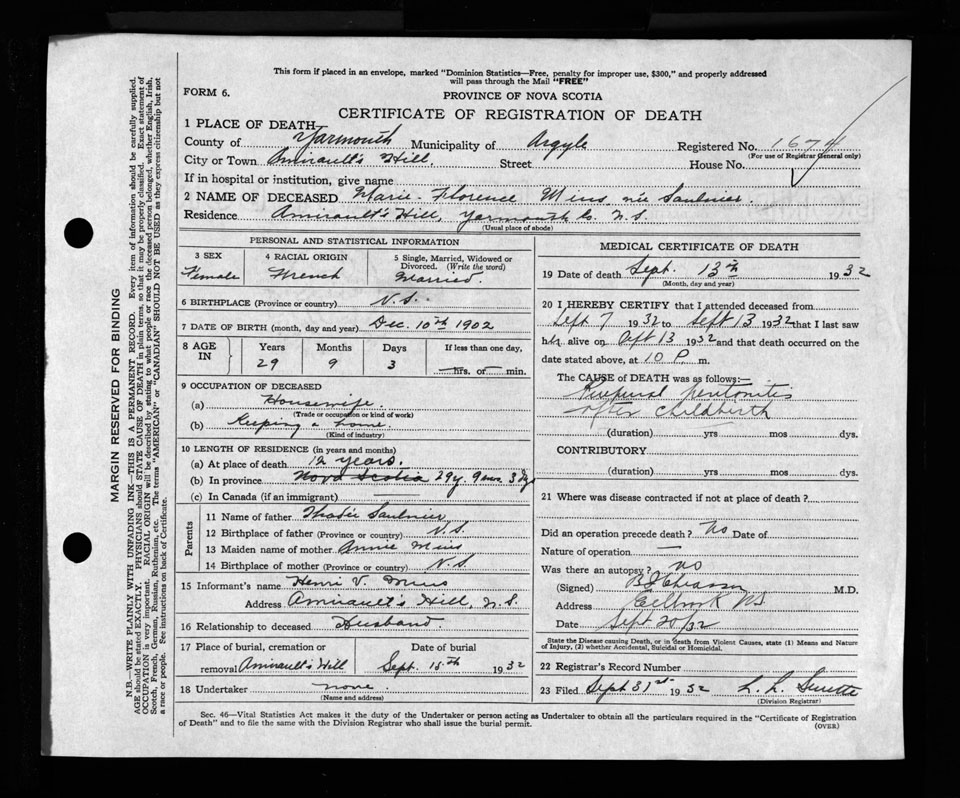 This form if placed in an envelope, marked "Dominion Statistics—Free, penalty for improper use, $300," and properly addressed
will pass through the Mail "FREE"
FORM 6.
PROVINCE OF NOVA SCOTIA
CERTIFICATE OF REGISTRATION OF DEATH
1 PLACE OF DEATH
County of Yarmouth Municipality of Argyle Registered No. 1674
(For use of Registrar General only)
City or Town Amirault's Hill, Street House No.
If in hospital or institution, give name
2 NAME OF DECEASED Marie Florence Mius née Saulnier.
Residence Amirault's Hill, Yarmouth Co. N.S.
(Usual place of abode)
PERSONAL AND STATISTICAL INFORMATION
3 SEX Female
4 RACIAL ORIGIN French
5 Single, Married, Widowed or
Divorced. (Write the word)
Married.
6 BIRTHPLACE (Province or country) N.S.
7 DATE OF BIRTH (month, day and year) Dec. 10th 1902
8 AGE IN
Years Months Days If less than one day,
29 9 3 hrs. or min.
9 OCCUPATION OF DECEASED
(a) Housewife.
(Trade or occupation or kind of work)
(b) Keeping a home.
(Kind of industry)
10 LENGTH OF RESIDENCE (in years and months)
(a) At place of death 12 years.
(b) In province Nova Scotia 29y. 9 mos. 3 dys
(c) In Canada (if an immigrant)
Parents
11 Name of father Saulnier
12 Birthplace of father (Province or country) N.S.
13 Maiden name of mother Annie Mius
14 Birthplace of mother (Province or country) N.S.
15 Informant's name Henri V. Mius
Address Amirault's Hill, N.S.
16 Relationship to deceased Husband.
17 Place of burial, cremation or Date of burial
removal Amirault's Hill Sept. 15th 1932
18 Undertaker none
(Name and address)
MEDICAL CERTIFICATE OF DEATH
19 Date of death Sept. 13th 1932
(Month, day and year)
20 I HEREBY CERTIFY that I attended deceased from
Sept 7 1932 to Sept 13 1932 that I last saw
her alive on Sept 13 1932 and that death occurred on the
date stated above, at 10 P. m.
The CAUSE of DEATH was as follows:—
Puerperal peritonitis
after childbirth
(duration) yrs mos dys.
CONTRIBUTORY
(duration) yrs mos dys.
21 Where was disease contracted if not at place of death?
Did an operation precede death? No Date of
Nature of operation —
Was there an autopsy? no
(Signed) M.D.
Address Eelbrook NS
Date Sept 20/32
State the Disease causing Death, or in death from Violent Causes, state (1) Means and Nature
of Injury, (2) whether Accidental, Suicidal or Homicidal.
22 Registrar's Record Number
23 Filed Sept 31st 1932 L. L. Surette
(Division Registrar)
Sec. 46—Vital Statistics Act makes it the duty of the Undertaker or person acting as Undertaker to obtain all the particulars required in the "Certificate of Registration
of Death" and to file the same with the Division Registrar who shall issue the burial permit. (OVER)
MARGIN RESERVED FOR BINDING
N.B.—WRITE PLAINLY WITH UNFADING INK—THIS IS A PERMANENT RECORD. Every item of information should be carefully supplied.
AGE should be stated EXACTLY. PHYSICIANS should STATE CAUSE OF DEATH in plain terms, so that it may be properly classified. Exact statement of
OCCUPATION is very important. RACIAL ORIGIN will be described by stating to what people or race the deceased person belonged, whether English, Irish,
Scotch, French, German, Russian, Ruthenian, etc. The terms "AMERICAN" or "CANADIAN" SHOULD NOT BE USED as they express citizenship but not
a race or people. See instructions on back of Certificate.